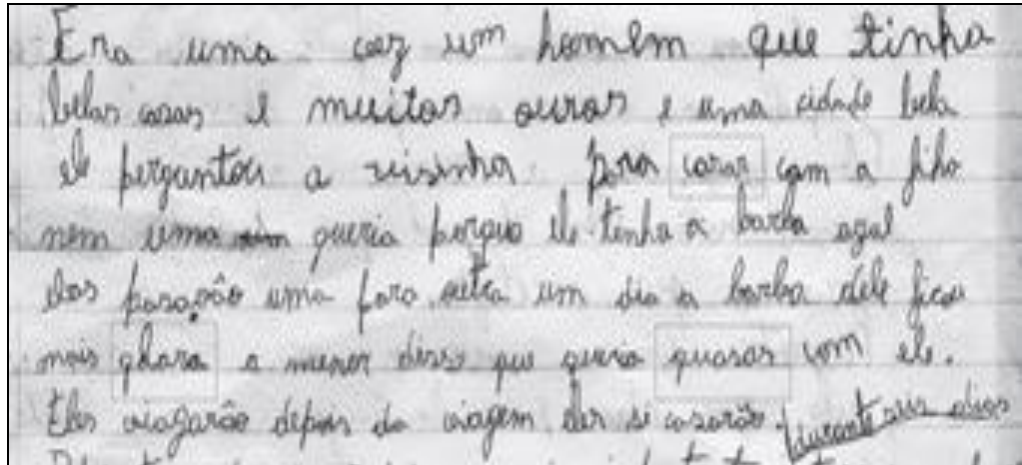 Era uma vez um homem que tinha
belas casas e muitos ouros e uma cidade bela
ele perguntou a visinha para casar com a fiho
nem uma queria porque ele tenha a barba azul
elas pasarão uma para outra um dia a barba dele ficou
mais ghara a menor disse que queria quasar com ele.
Eles viagarão depois da viagem eles si casarão. durante seis dias